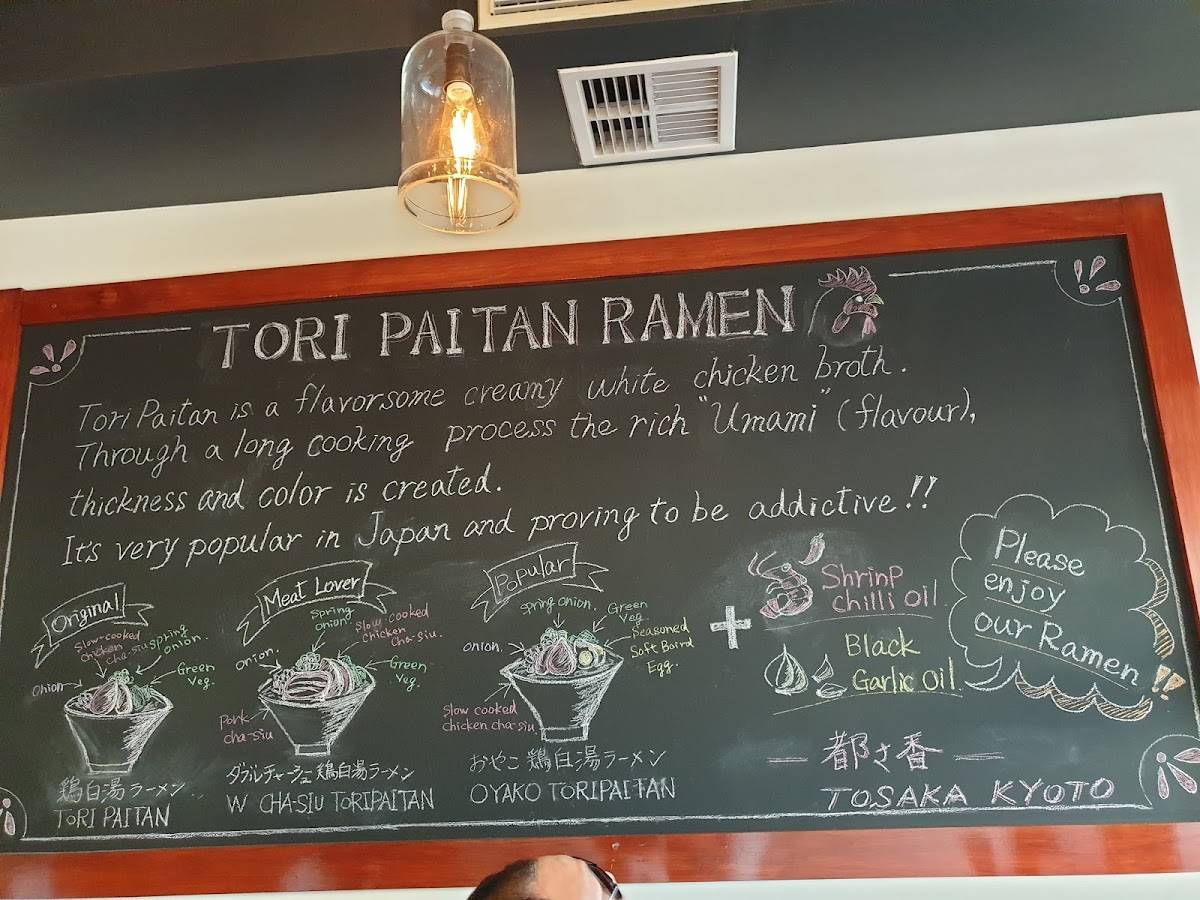 TORI PAITAN RAMEN
Tori Paitan is a flavorsome creamy white chicken broth.
Through a long cooking process the rich "Umami" (flavour),
thickness and color is created.
It's very popular in Japan and proving to be addictive!!
Original
Slow-cooked
chicken
cha-siu
spring
onion.
Onion
Green
Veg.
鶏白湯ラーメン
TORI PAITAN
Meat Lover
spring
onion
Slow-cooked
chicken
cha-siu.
onion.
Green
Veg.
Pork
cha-siu
ダブルチャーシュー鶏白湯ラーメン
W CHA-SIU TORIPAITAN
Popular
spring onion.
Green
Veg.
onion.
Seasoned
Soft Boird
Egg.
Slow cooked
chicken cha-siu
おやこ鶏白湯ラーメン
OYAKO TORIPAITAN
+
Shrinp
chilli Oil
Black
Garlic Oil
Please
enjoy
our Ramen!!
— 都さ番 —
TOSAKA KYOTO